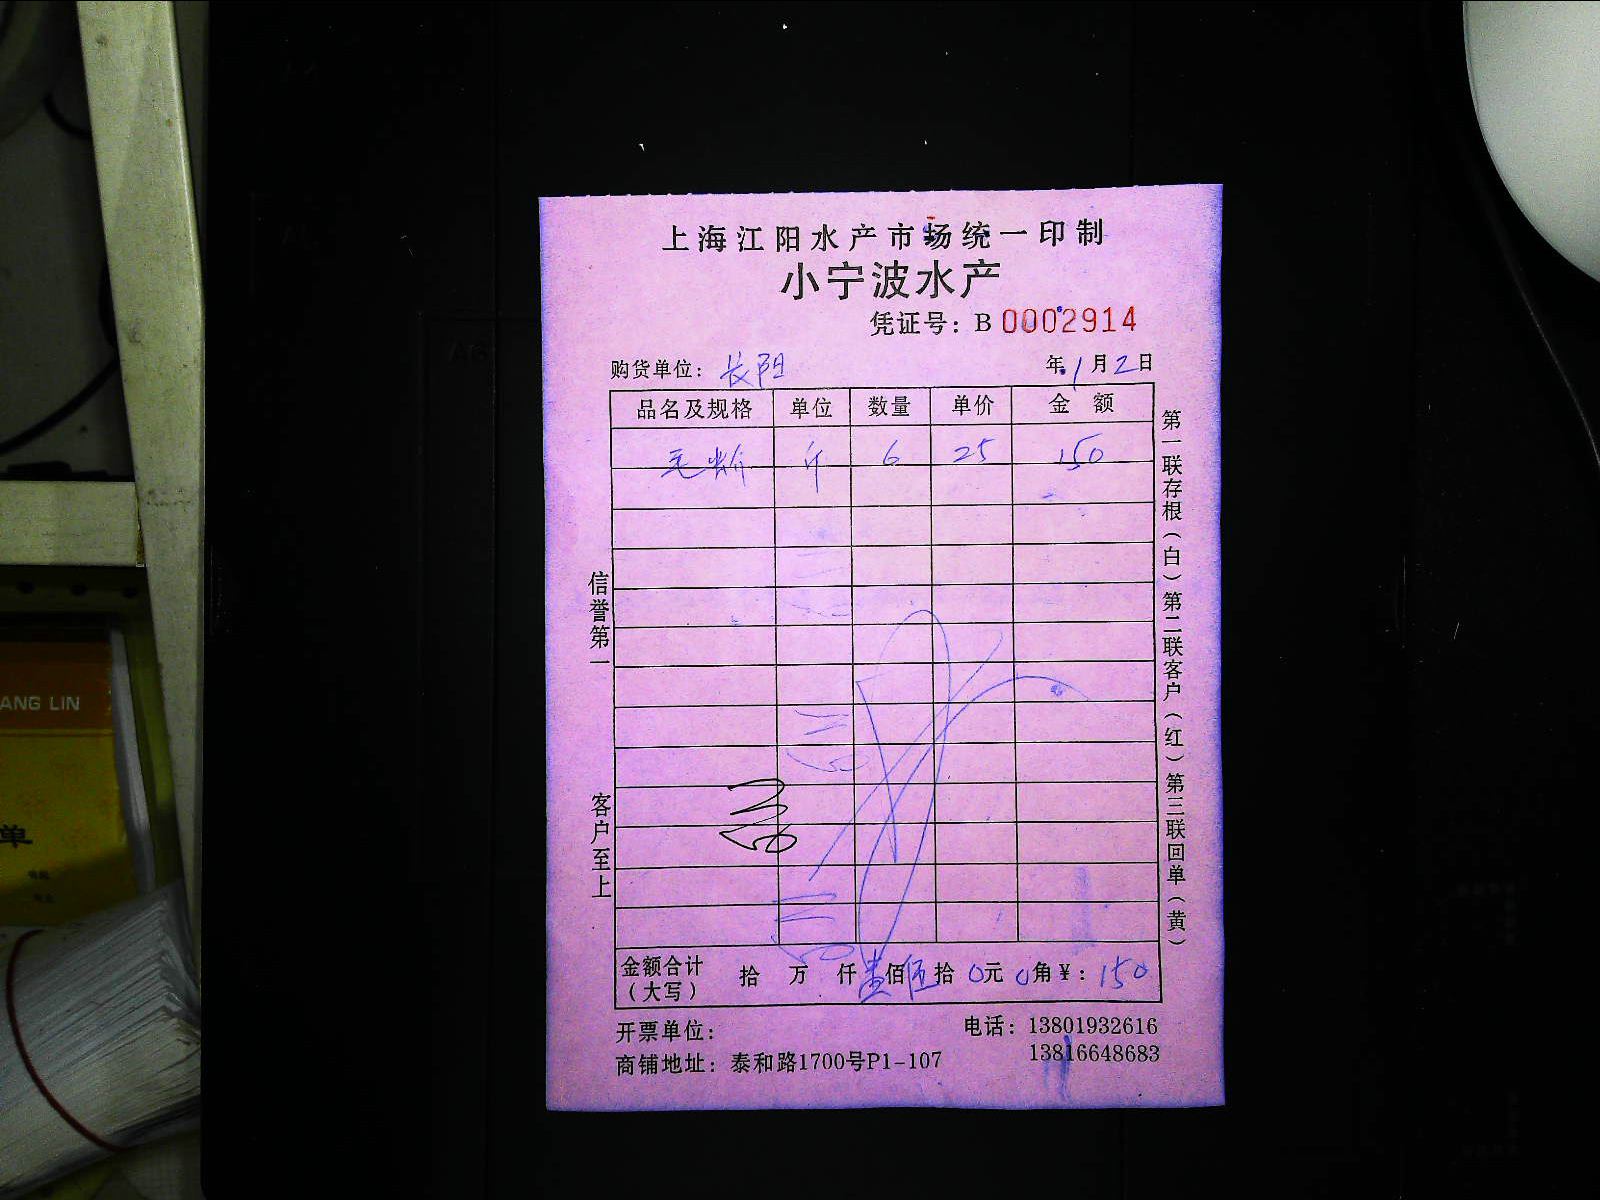 上海江阳水产市场统一印制
小宁波水产
凭证号：B 0002914
购货单位：长阳 年1月2日
品名及规格 单位 数量 单价 金额
毛 斤 6 25 150
信誉第一
客户至上
第一联存根（白）第二联客户（红）第三联回单（黄）
金额合计（大写） 拾 万 仟壹佰伍拾0元0角￥：150
开票单位：
电话：13801932616
13816648683
商铺地址：泰和路1700号P1-107
ANG LIN
单